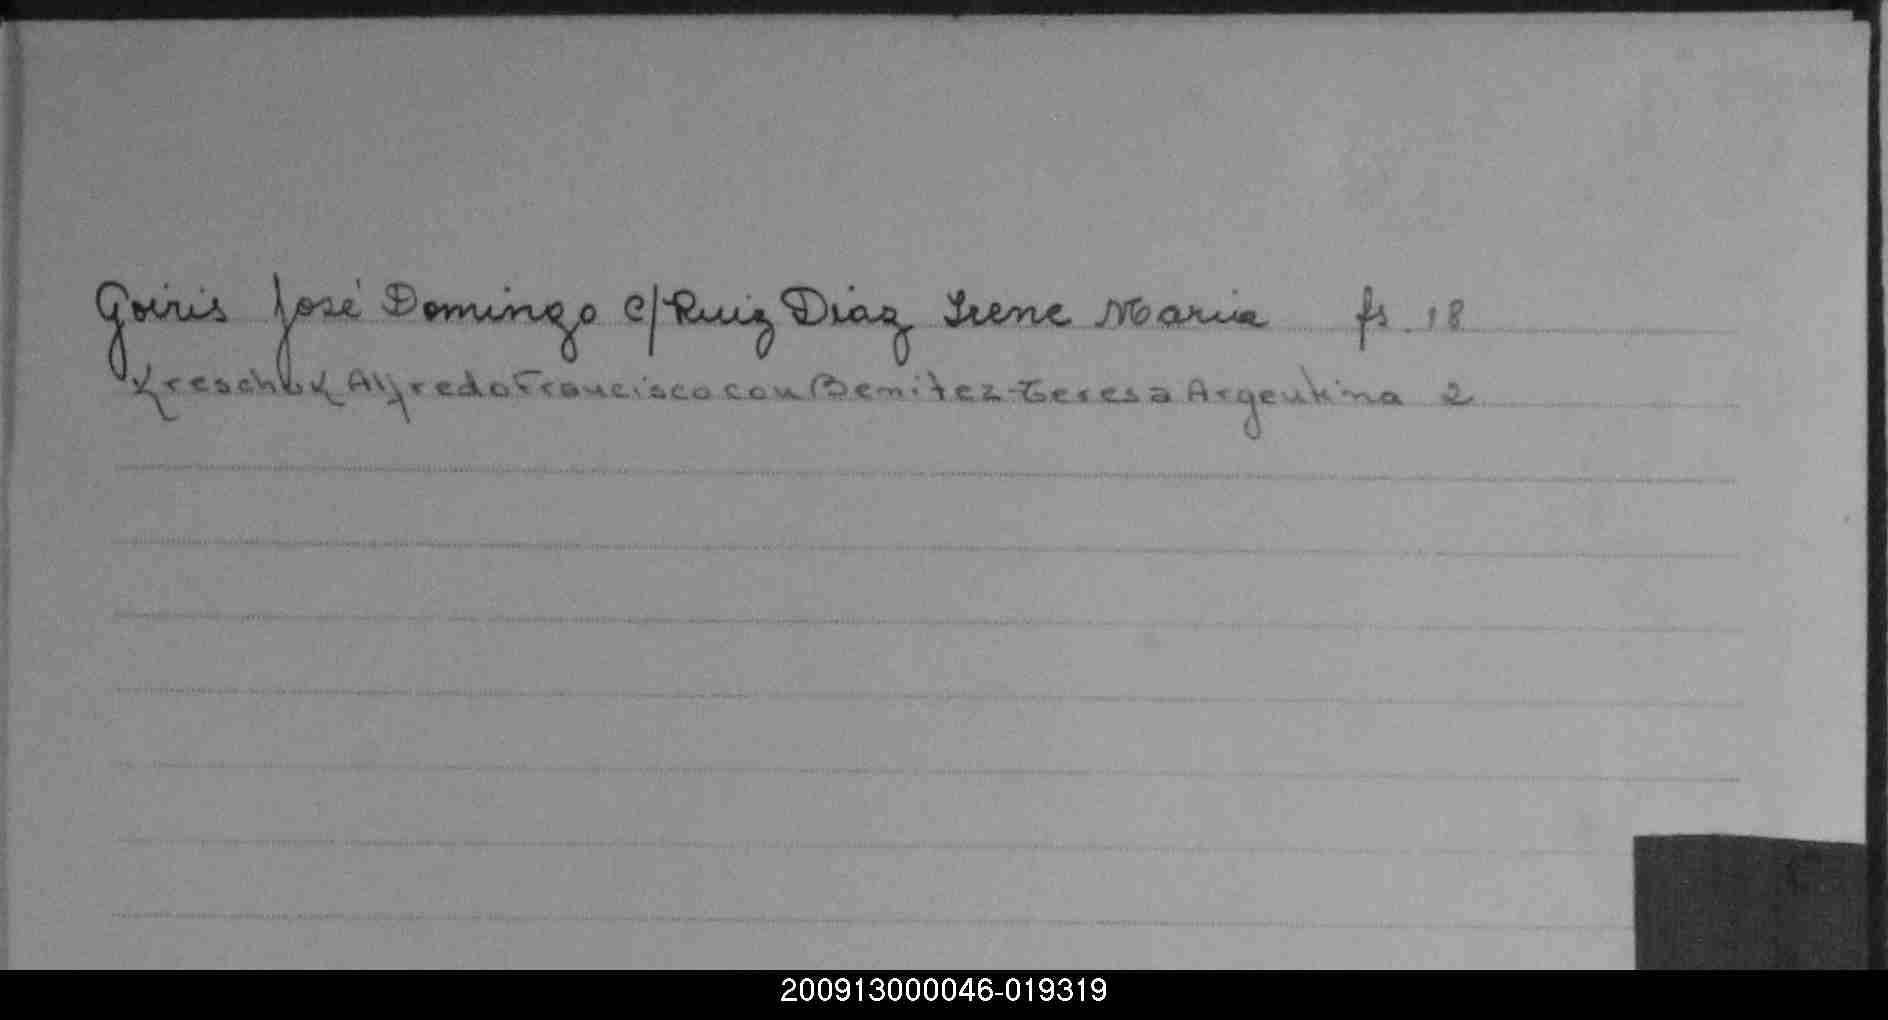 Goiris José Domingo c/ Ruiz Diaz Irene Maria fs. 18
Kreschuk Alfredo Francisco con Benitez Teresa Argentina 2
200913000046-019319